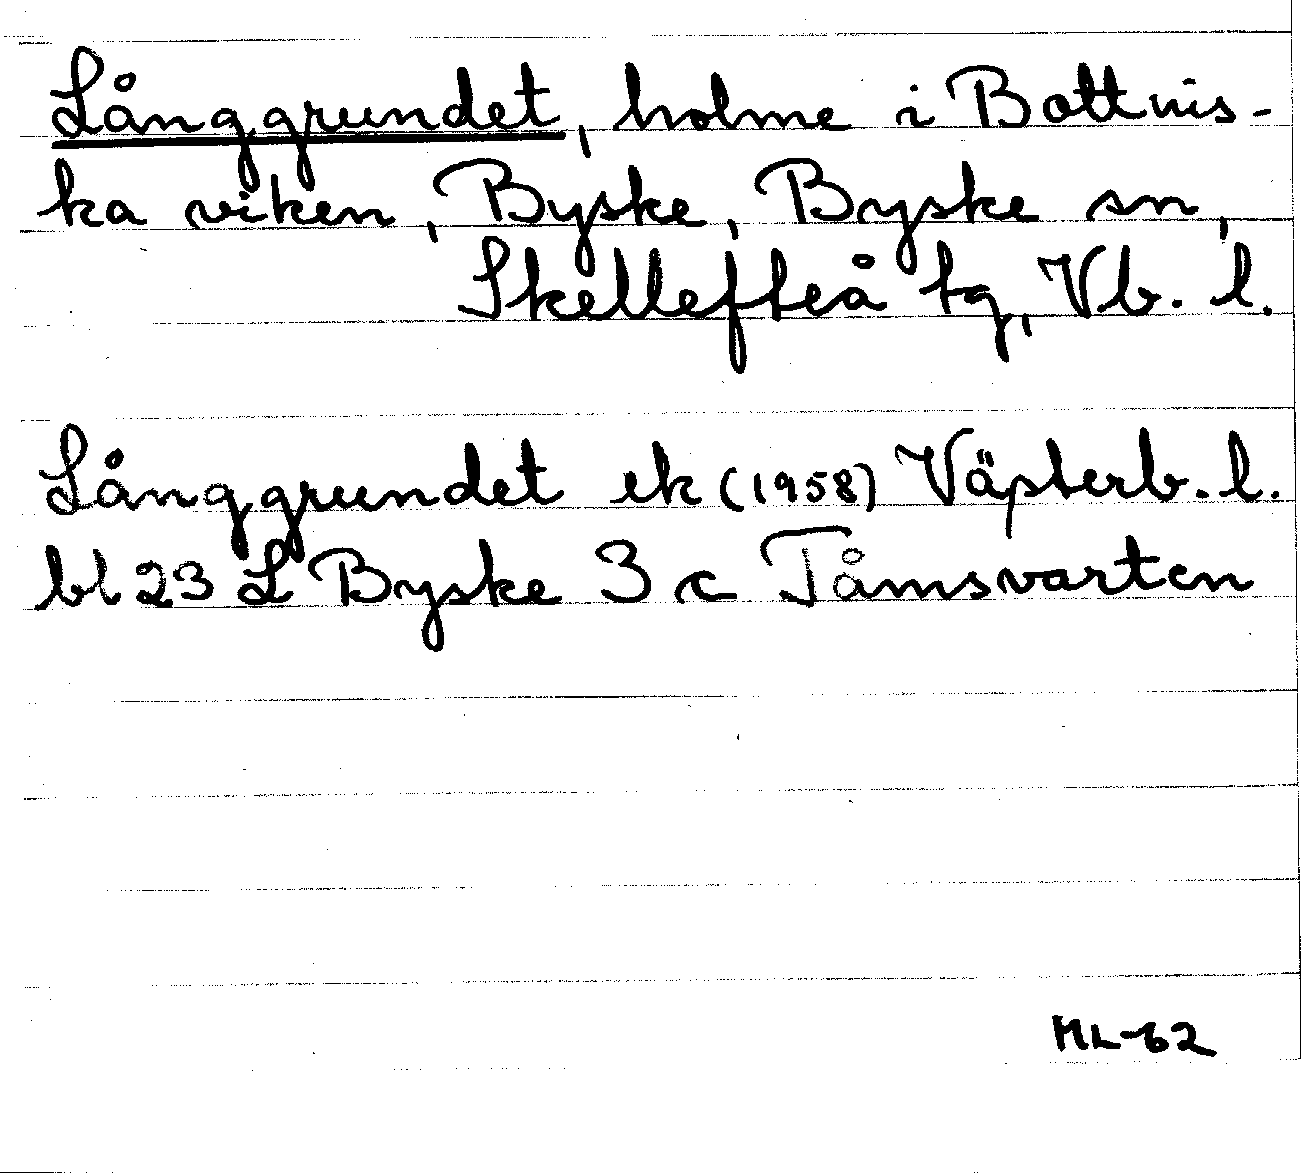 Långgrundet, holme i Bottnis-
ka viken, Byske, Byske sn,
Skellefteå tg, Vb. l.
Långgrundet ek (1958) Västerb. l.
bl 23 L Byske 3 c Tåmsvarten
ML-62